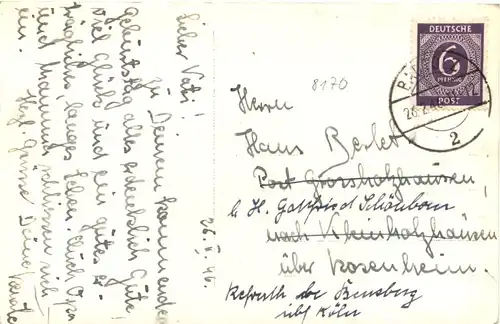 Lieber Vati!
Zu Deinem kommenden
Geburtstag alles erdenklich Gute
viel Glück und ein gutes er-
trägliches, langes Leben. Auch Opa
und Mamma schliessen sich
an.
Herzl. Grüsse Deine
26.II.46.
DEUTSCHE
6
PFENNIG
POST
26.2.
2
8170
Herrn
Hans
Post Grossholzhausen,
b. H. Gottfried Schönborn
nach Kleinholzhausen
über Rosenheim.
Refrath bei Bensberg
üb/ Köln